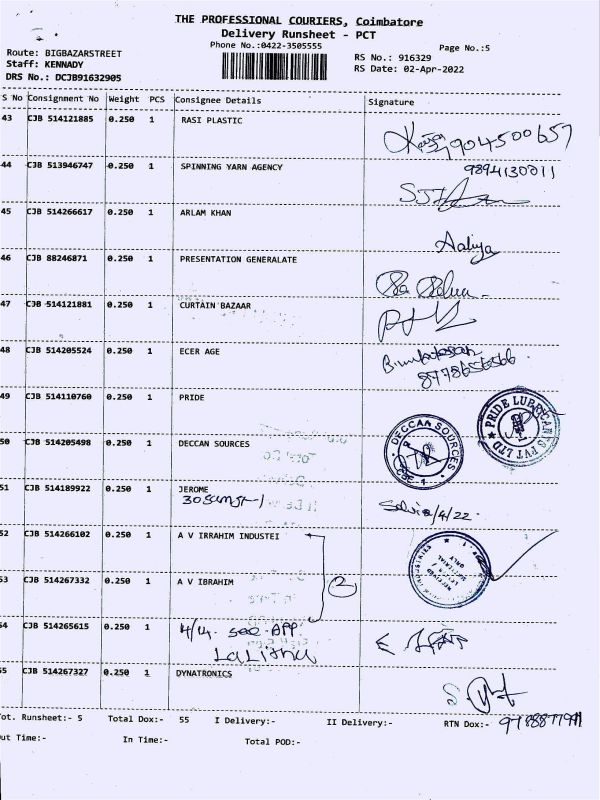 THE PROFESSIONAL COURIERS, Coimbatore
Delivery Runsheet - PCT
Phone No.:0422-3505555
Page No.:5
Route: BIGBAZARSTREET
Staff: KENNADY
DRS No.: DCJB91632905
RS No.: 916329
RS Date: 02-Apr-2022
S No Consignment No Weight PCS Consignee Details Signature
43 CJB 514121885 0.250 1 RASI PLASTIC
7904500657
44 CJB 513946747 0.250 1 SPINNING YARN AGENCY 9894130011
45 CJB 514266617 0.250 1 ARLAM KHAN
Aaliya
46 CJB 88246871 0.250 1 PRESENTATION GENERALATE
47 CJB 514121881 0.250 1 CURTAIN BAZAAR
48 CJB 514205524 0.250 1 ECER AGE
8778656566
49 CJB 514110760 0.250 1 PRIDE
PRIDE LUBRICANTS PVT LTD
50 CJB 514205498 0.250 1 DECCAN SOURCES
DECCAN SOURCES
CBE-1
51 CJB 514189922 0.250 1 JEROME
/4/22
52 CJB 514266102 0.250 1 A V IRRAHIM INDUSTEI
INDUSTRIES
53 CJB 514267332 0.250 1 A V IBRAHIM
2
54 CJB 514265615 0.250 1 4/14 See APP
Lalitha
55 CJB 514267327 0.250 1 DYNATRONICS
Tot. Runsheet:- 5 Total Dox:- 55 I Delivery:- II Delivery:- RTN Dox:-
Out Time:- In Time:- Total POD:-